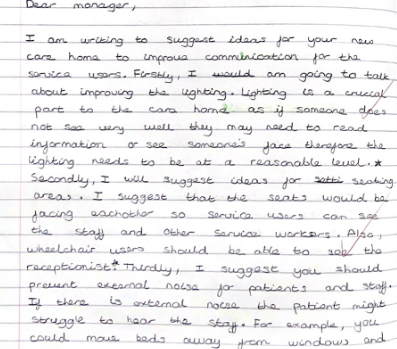 Dear manager,
I am writing to suggest ideas for your new
care home to improve communication for the
service users. Firstly, I would am going to talk
about improving the lighting. Lighting is a crucial
part to the care home as if someone does
not see very well they may need to read
information or see someone's face therefore the
lighting needs to be at a reasonable level.*
Secondly, I will suggest ideas for setti seating
areas. I suggest that the seats would be
facing eachother so service users can see
the staff and other service workers. Also,
wheelchair users should be able to see the
receptionist.* Thirdly, I suggest you should
prevent external noise for patients and staff.
If there is external noise the patient might
struggle to hear the staff. For example, you
could move beds away from windows and